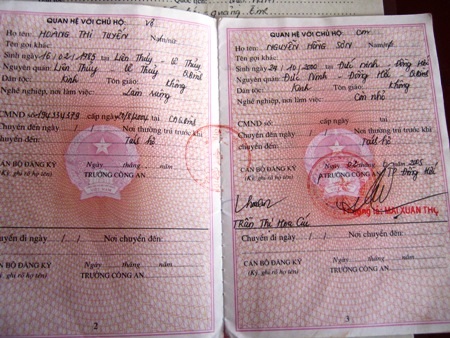 QUAN HỆ VỚI CHỦ HỘ: Vợ
Họ tên: HOÀNG THỊ TUYẾN Nam/nữ:
Tên gọi khác:
Sinh ngày 16/02/1985 tại Liên Thủy, Lệ Thủy
Nguyên quán: Liên Thủy, Lệ Thủy, Q.Bình
Dân tộc: Kinh Tôn giáo: Không
Nghề nghiệp, nơi làm việc: Làm ruộng
CMND số: cấp ngày tại CA Q.Bình
Chuyển đến ngày / / Nơi thường trú trước khi
chuyển đến:
Ngày tháng năm
CÁN BỘ ĐĂNG KÝ
(Ký, ghi rõ họ tên)
TRƯỞNG CÔNG AN
Chuyển đi ngày / / Nơi chuyển đến:
Ngày tháng năm
CÁN BỘ ĐĂNG KÝ
(Ký, ghi rõ họ tên)
TRƯỞNG CÔNG AN
2
QUAN HỆ VỚI CHỦ HỘ: Con
Họ tên: NGUYỄN HỒNG SƠN
Tên gọi khác:
Sinh ngày 24/10/2000 tại Đức Ninh, Đồng Hới
Nguyên quán: Đức Ninh, Đồng Hới, Q.Bình
Dân tộc: Kinh Tôn giáo: Không
Nghề nghiệp, nơi làm việc: Còn nhỏ
CMND số: cấp ngày tại
Chuyển đến ngày / / Nơi thường trú trước khi
chuyển đến:
Ngày 02 tháng năm 2005
CÁN BỘ ĐĂNG KÝ
(Ký, ghi rõ họ tên)
TRƯỞNG CÔNG AN TP Đồng Hới
Trần Thị Hoa Cúc
MAI XUÂN THU
Chuyển đi ngày / / Nơi chuyển đến:
Ngày tháng năm
CÁN BỘ ĐĂNG KÝ
(Ký, ghi rõ họ tên)
TRƯỞNG CÔNG AN
3